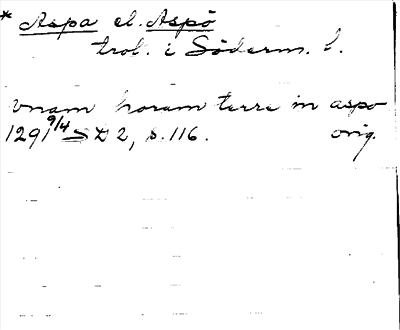 * Aspa el. Aspö
trol. i Söderm. l.
vnam horam terre in aspo
1291 9/4 SD 2, s. 116. orig.